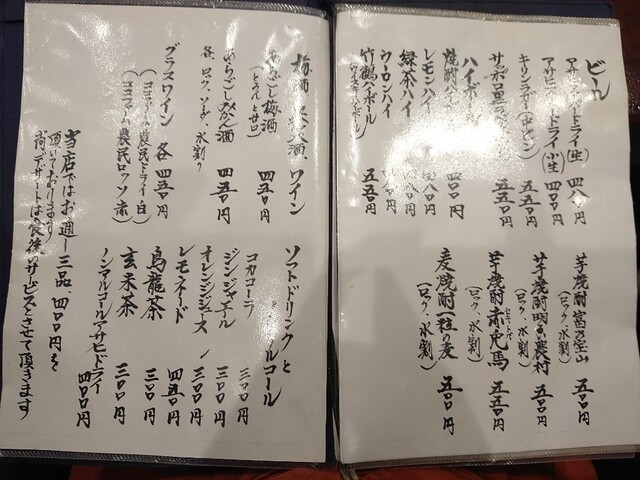 ビール
アサヒスーパードライ(生) 四八〇円
アサヒスーパードライ(小生) 四〇〇円
キリンラガー(中ビン) 五五〇円
サッポロ黒 五五〇円
ハイボール
焼酎ハイ 四〇〇円
レモンハイ 四八〇円
緑茶ハイ
ウーロンハイ
竹鶴ハイボール 五五〇円
芋焼酎 富乃宝山 五〇〇円
(ロック、水割)
芋焼酎 明るい農村 五〇〇円
(ロック、水割)
芋焼酎 赤兎馬 五五〇円
(ロック、水割)
麦焼酎 一粒の麦 五〇〇円
(ロック、水割)
梅酒 ワイン
あらごし梅酒 四五〇円
(とろんと甘口)
あらごしみかん酒 四五〇円
各、ロック、ソーダ、水割り
グラスワイン 各 四五〇円
(ココファーム農民ドライ 白)
(ココファーム農民ロッソ 赤)
ソフトドリンクと
ノンアルコール
コカコーラ 三〇〇円
ジンジャエール 三〇〇円
オレンジジュース 三〇〇円
レモネード 四五〇円
烏龍茶 三〇〇円
玄米茶 三〇〇円
ノンアルコールアサヒドライ
四〇〇円
当店ではお通し三品、四〇〇円を
頂いております
尚、デザートは食後のサービスとさせて頂きます